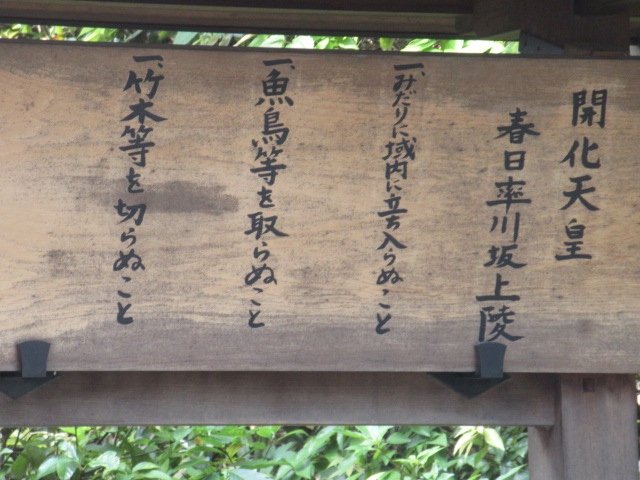 開化天皇
春日率川坂上陵
一、みだりに域内に立ち入らぬこと
一、魚鳥等を取らぬこと
一、竹木等を切らぬこと